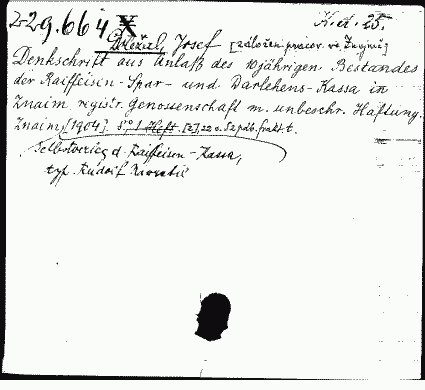 2-29.664 K.d. 25.
Doležal, Josef [založení pracov. ve Znojmě]
Denkschrift aus Anlaß des 10jährigen Bestandes
der Raiffeisen-Spar- und Darlehens-Kassa in
Znaim registr. Genossenschaft m. unbeschr. Haftung.
Znaim, [1904]. 8° 1 Heft. [2], 22 o. S2
Selbstverlag d. Raiffeisen-Kassa,
typ. Rudolf